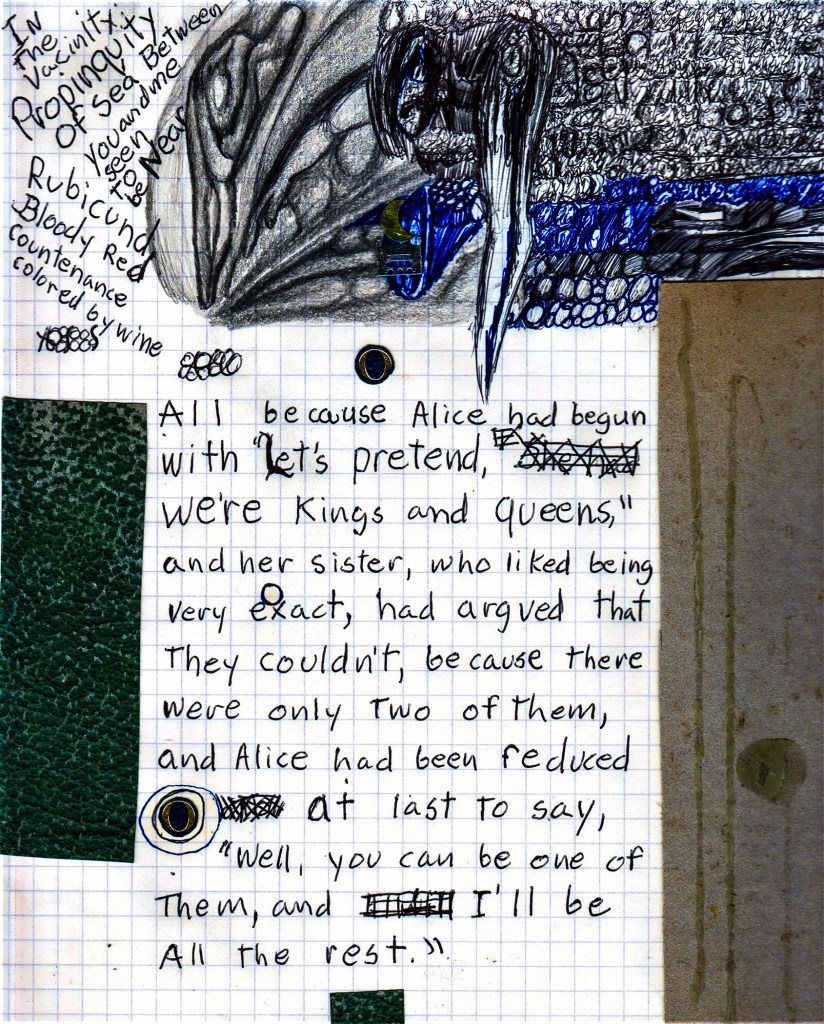 IN
the
Vacinity:
Propinquity
OF Sea Between
You and me
seen
To be
Near
Rubicund,
Bloody Red
Countenance
colored by wine
O
All because Alice had begun
with "Let's pretend,
we're Kings and Queens,"
and her sister, who liked being
very exact, had argued that
They couldn't, because there
were only Two of them,
and Alice had been reduced
O at last to say,
"Well, you can be one of
Them, and I'll be
All the rest."